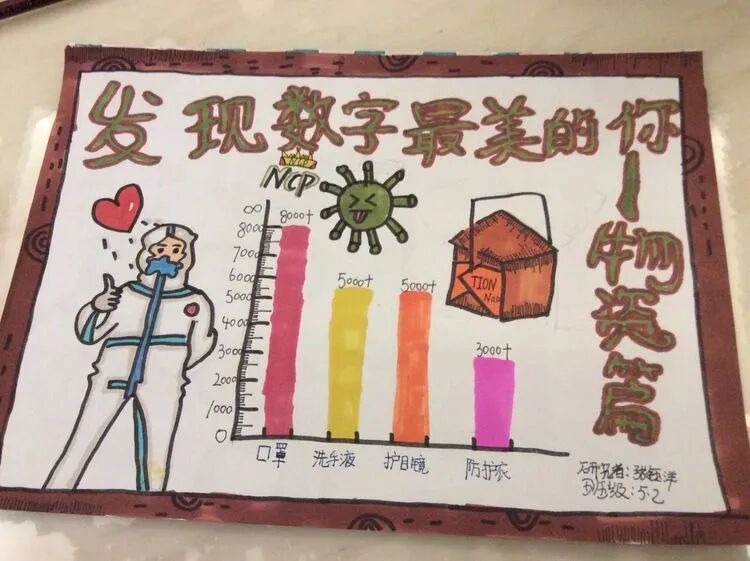 发现数字最美的你—物资篇
Ncp
∞
8000
7000
6000
5000
4000
3000
2000
1000
0
8000+
5000+
5000+
3000+
TION
Ncp
口罩 洗手液 护目镜 防护衣
研究者:张钰洋
班级:5.2